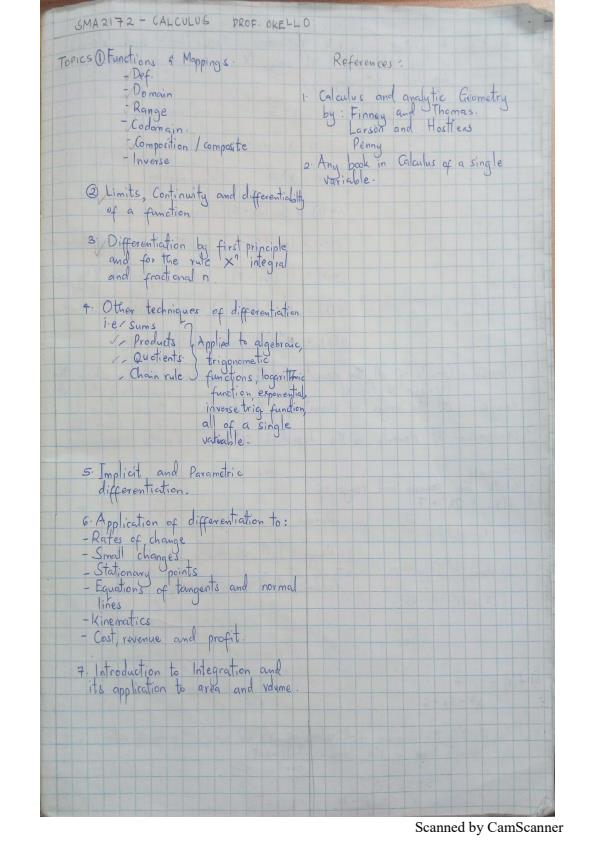 SMA2172 - CALCULUS PROF. OKELLO
TOPICS ① Functions & Mappings.
- Def.
- Domain
- Range
- Codomain.
- Composition / composite
- Inverse
② Limits, Continuity and differentiability
of a function
3. Differentiation by first principle
and for the rule xⁿ integral
and fractional n.
4. Other techniques of differentiation
i.e/ sums
Products
Quotients
Chain rule
Applied to algebraic,
trigonometic
functions, logarithmic
function, exponential,
inverse trig. function,
all of a single
variable.
5. Implicit and Parametric
differentiation.
6. Application of differentiation to:
- Rates of change
- Small changes
- Stationary points
- Equations of tangents and normal
lines
- Kinematics
- Cost, revenue and profit.
7. Introduction to Integration and
its application to area and volume.
References:
1. Calculus and analytic Geometry
by: Finney and Thomas.
Larson and Hostlers
Penny
2. Any book in Calculus of a single
variable.
Scanned by CamScanner